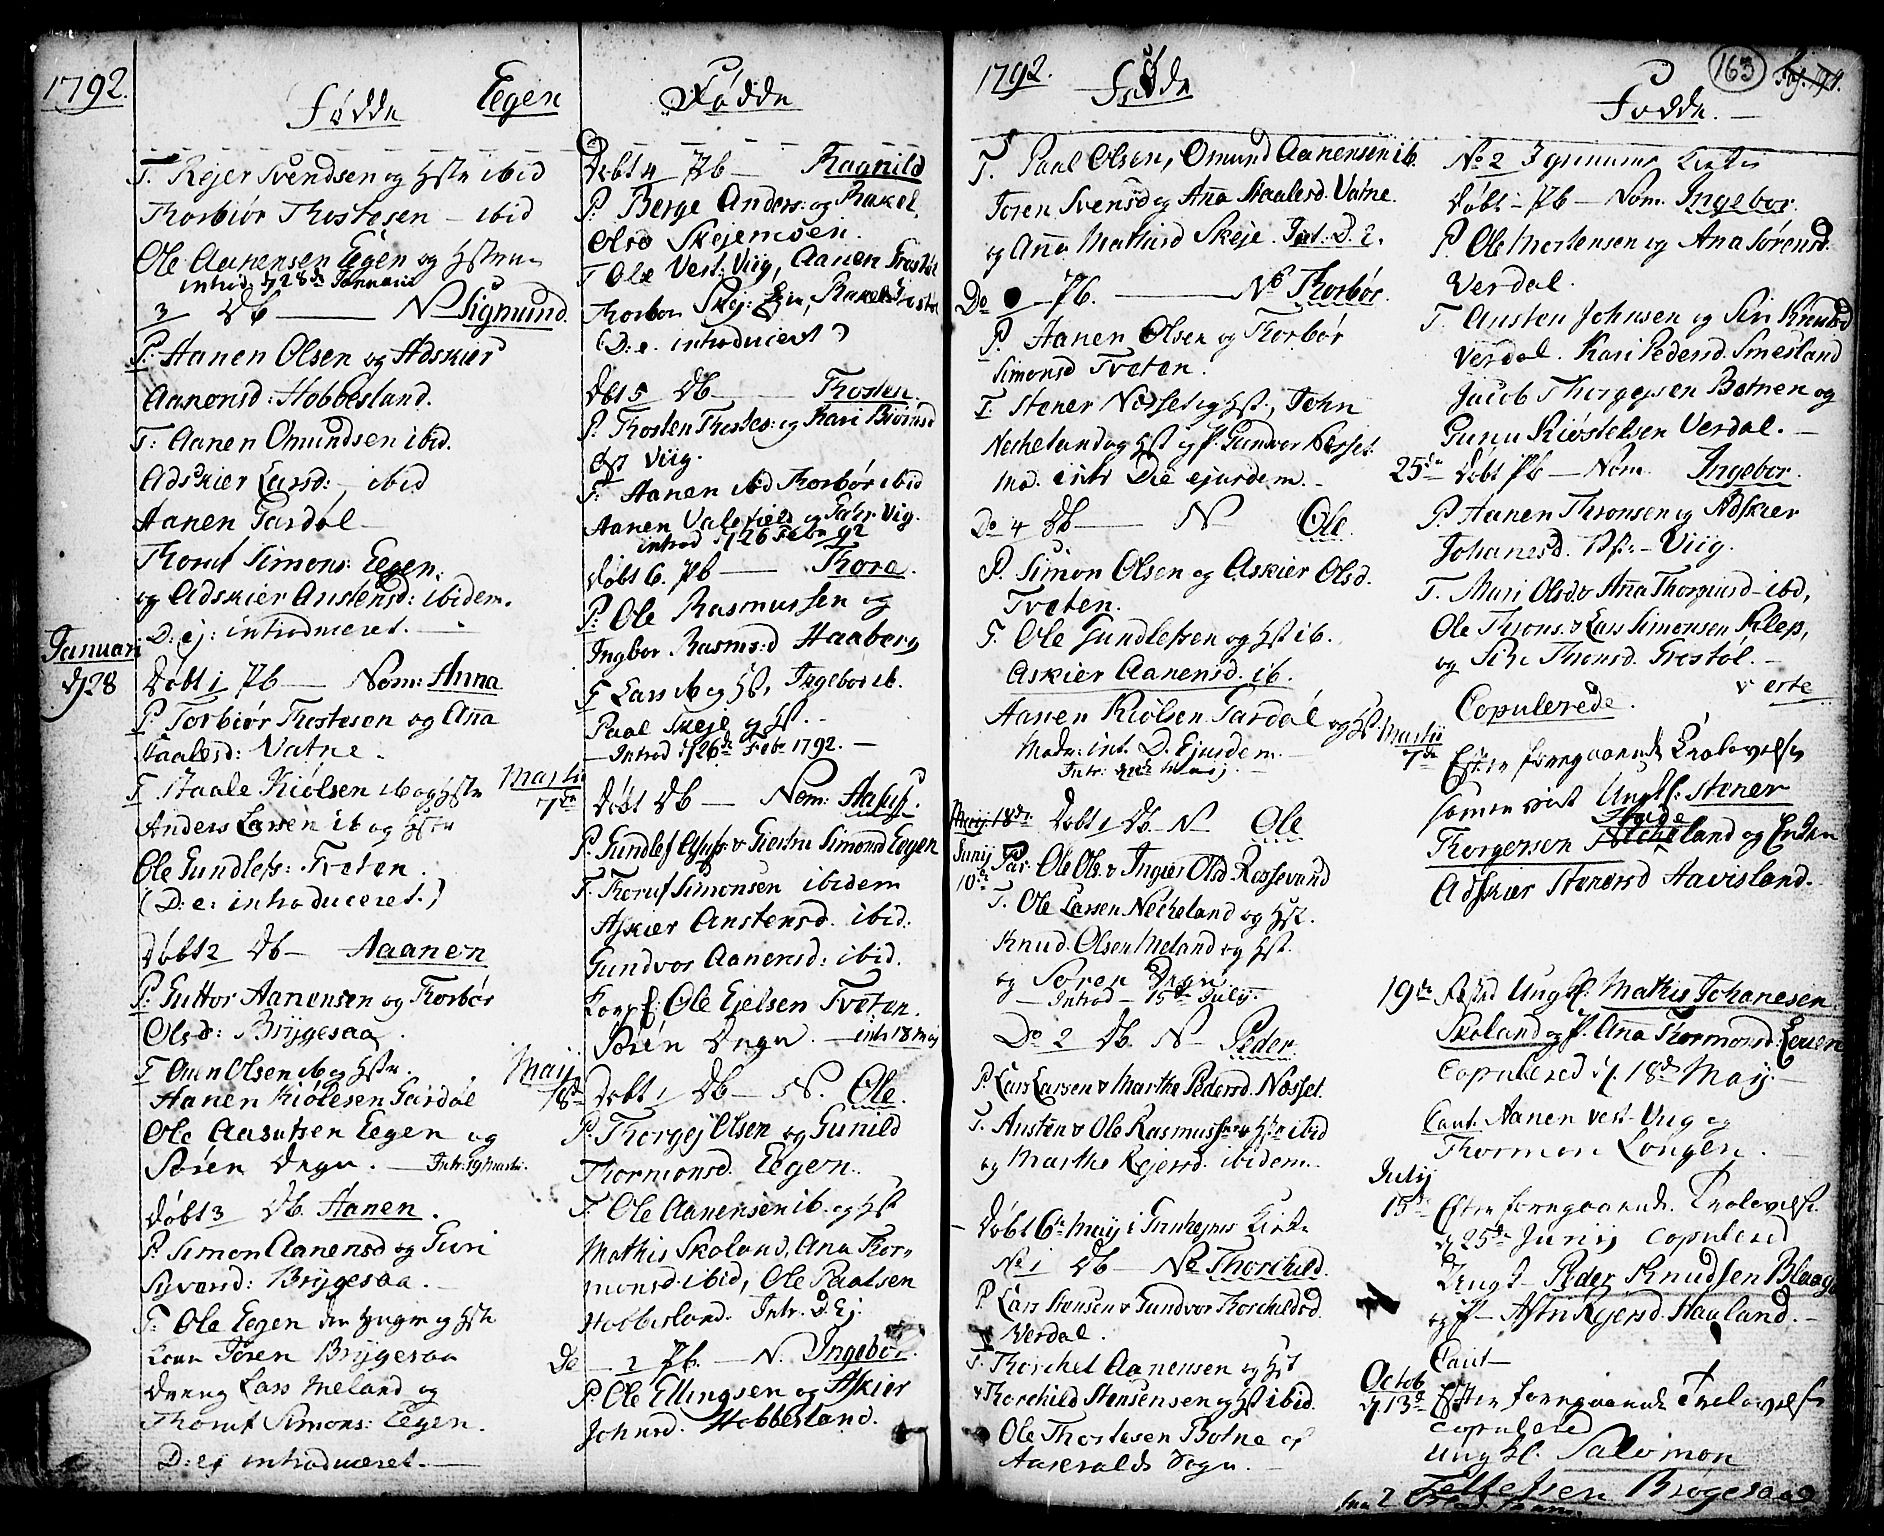 1792.
Fødde Eegen
T. Rejer Svendsen og Hstr ibid
Thorbiør Thostesen - ibid
Ole Aanensen Eegen og Hstru
introd. d 28de Januarii
3 Db — N Sigmund.
P: Aanen Olsen og Adskier
Aanensd: Hobbesland.
T: Aanen Omundsen ibid.
Adskier Larsd: - ibid
Aanen Gardøl -
Thoruf Simons: Eegen.
og Adskier Anstensd: ibidem.
D: ej: introduceret. -
Januari
d 28
Døbt 1 Pb — Nom: Anna
P. Torbiør Thostesen og Aña
Staalesd: Vatne.
T Staale Kiølsen ib og Hstr
Anders Larsen ib og Hstr
Ole Gundlefs: Tveten.
(D: e: introduceret.)
Døbt 2 Db - Aaanen
P: Guttor Aanensen og Thorbør
Olsd: Brygesaa.
T Olsen ib og Hstr.
Aanen Kiølesen Gardøl
Ole Aasulsen Eegen og
Søren Degn. - Intr: 19 Martii.
Døbt 3 Db. Aanen.
P. Simon Aanensd og Guri
Syversd: Brygesaa. -
T: Ole Eegen den yngre og Hstr
Søren Brygesaa
Dreng Lars Meland og
Thoruf Simons: Eegen.
D: ej introduceret. -
Fødde
Døbt 4 Pb — Ragnild
P. Berge Anders: og Rakel
Olsd Skejemoen.
T Ole Vest: Viig, Aanen Trostøl
Thorbor Skej: Rakel Trostøl
(D: e. introduceret)
Døbt 5 Db — Thosten.
P. Thosten Thostes: og Kari Biørnsd
Øst Viig.
T: Aanen ibid Thorbór ibid
Aanen Valefield og Viig.
introd d 26 Febr 92
døbt 6. Pb — Thore.
P: Ole Rasmussen og
Ingbor Rasmsd Haaberg
T Lars ib og Hst, Ingebor ib.
Paal Skeje og Hst. -
- Introd d 26de Febr 1792. -
Martii
7de
Døbt Db — Nom: Aasuf.
P. Gundlef Asufs: & Giertru Simonsd Eegen
T. Thoruf Simonsen ibidem
Askier Anstensd. ibid:
Gundvor Aanensd: ibid.
Ole Ejelsen Tveten.
Søren Degn. - intr 18 Maj
Maij
18de
Døbt 1 Db - N. Ole.
P. Thorgej Olsen og Gunild
Thormonsd. Eegen.
T. Ole Aanensen ib. og Hst
Mathis Skoland, Ana Thor-
monsd. ibid, Ole Paalsen
Hobbesland. Intr. D. Ej.
Do - 2 Pb. - N. Ingebor.
P: Ole Ellingsen og Askier
Johnsd. Hobbesland.
1792.
Fødde
T. Paal Olsen, Omund Aanensen ib.
Søren Svensd og Aña Staalesd. Vatne.
og Aña Mathisd Skeje. Int: D. 2.
Do - Pb. — No Thorbør.
P. Aanen Olsen og Thorbór
Simonsd Tveten.
T. Stener Nosset og Hst., John
Necheland og Hst og P. Gunvor Nosset
Mo. intr Die ejusdem. -
Do 4 Db — N Ole
P. Simon Olsen og Askier Olsd.
Tveten.
T. Ole Gundlefsen og Hst ib.
Askier Aanensd. ib.
Aanen Kiølsen Gardøl og Hst
Modr: int. D. Ejusdem.
Maij 18de
Junij
10de
Døbt 1 Db. N Ole
Par Ole Ols. & Ingier Olsd Rossevand
T. Ole Larsen Necheland og Hst.
Knud Olsen Meland og Hst
og Søren Degn
- Introd - 15de Julij. -
Do 2 Db. N - Peder.
P. Lars Larsen & Marthe Pedersd. Nosset.
T. Austen & Ole Rasmussen & Hstr ibid
og Marthe Rejersd. ibidem. -
- Døbt 6te Maij i Kirke
No 1 Db - No Thorchild.
P. Lars Stensen & Gundvor Thorchildsd.
Verdal.
T. Thorchel Aanensen og Hst
& Thorchild Stensensen og Hst ibid.
Ole Thostesen Botne af
Aaseralds Sogn. -
163
Fødde. -
No 2 Kirke
døbt - Pb - Nom. Ingebor.
P. Ole Mortensen og Ana Sørensd.
Verdal.
T. Austen Johnsen og Siri Knudsd
Verdal. Kari Pedersd. Smesland
Jacob Thorgejsen Botnen og
Gunu Kiøstelsen Verdal. -
25de døbt Pb - Nom. Ingebor.
P. Aanen Thronsen og Adskier
Johanesd. Viig.
T. Mari Olsd. & Aña Thorgiersd - ibid,
Ole Throns. & Lars Simonsen Klep,
og Thronsd. Trostøl. -
Copulerede.
Martii
7de
Efter foregaaende Trolovelse
Ungk: Stener
Thorgersen Necheland og Enken
Adskier Stenersd Haavisland. -
19de Ungk. Mathis Johanesen
Skoland og P. Ana Thormonsd. Eegen
Copulered d. 18de Maij. -
Caut. Aanen Vest-Viig og
Thormon Longen. -
Julij
15de Efter foregaaende Trolovelse
d 25de Junij copulered
Ungk. Peder Knudsen Blaag
og P. Rejersd. Hauland. -
Caut -
Octob
d 13de Efter foregaaende Trolovelse
copulered
Ungk. Salomon
Tellefsen Brøgesaa